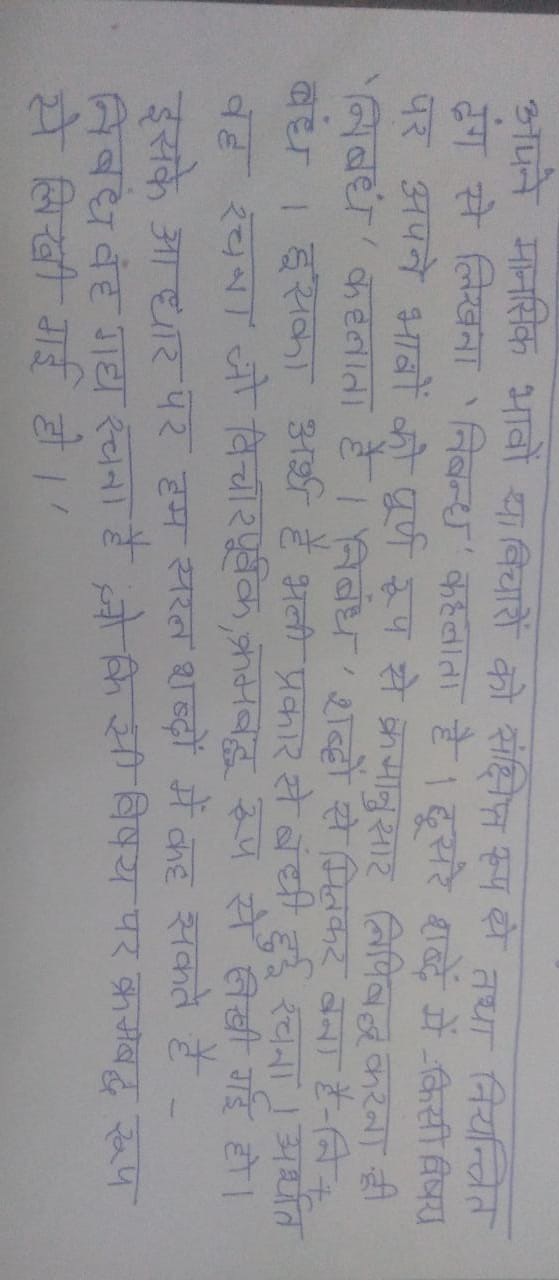 अपने मानसिक भावों या विचारों को संक्षिप्त रूप से तथा नियन्त्रित
ढंग से लिखना 'निबन्ध' कहलाता है । दूसरे शब्दें में -किसी विषय
पर अपने भावों को पूर्ण रूप से क्रमानुसार लिपिबद्ध करना ही
'निबंध' कहलाता है । 'निबंध' शब्दों से मिलकर बना है-नि +
बंध । इसका अर्थ है भली प्रकार से बंधी हुई रचना । अर्थात
वह रचना जो विचारपूर्वक, क्रमबद्ध रूप से लिखी गई हो।
इसके आधार पर हम सरल शब्दों में कह सकते है -
निबंध वह गद्य रचना है जो किसी विषय पर क्रमबद्ध रूप
से लिखी गई हो ।'